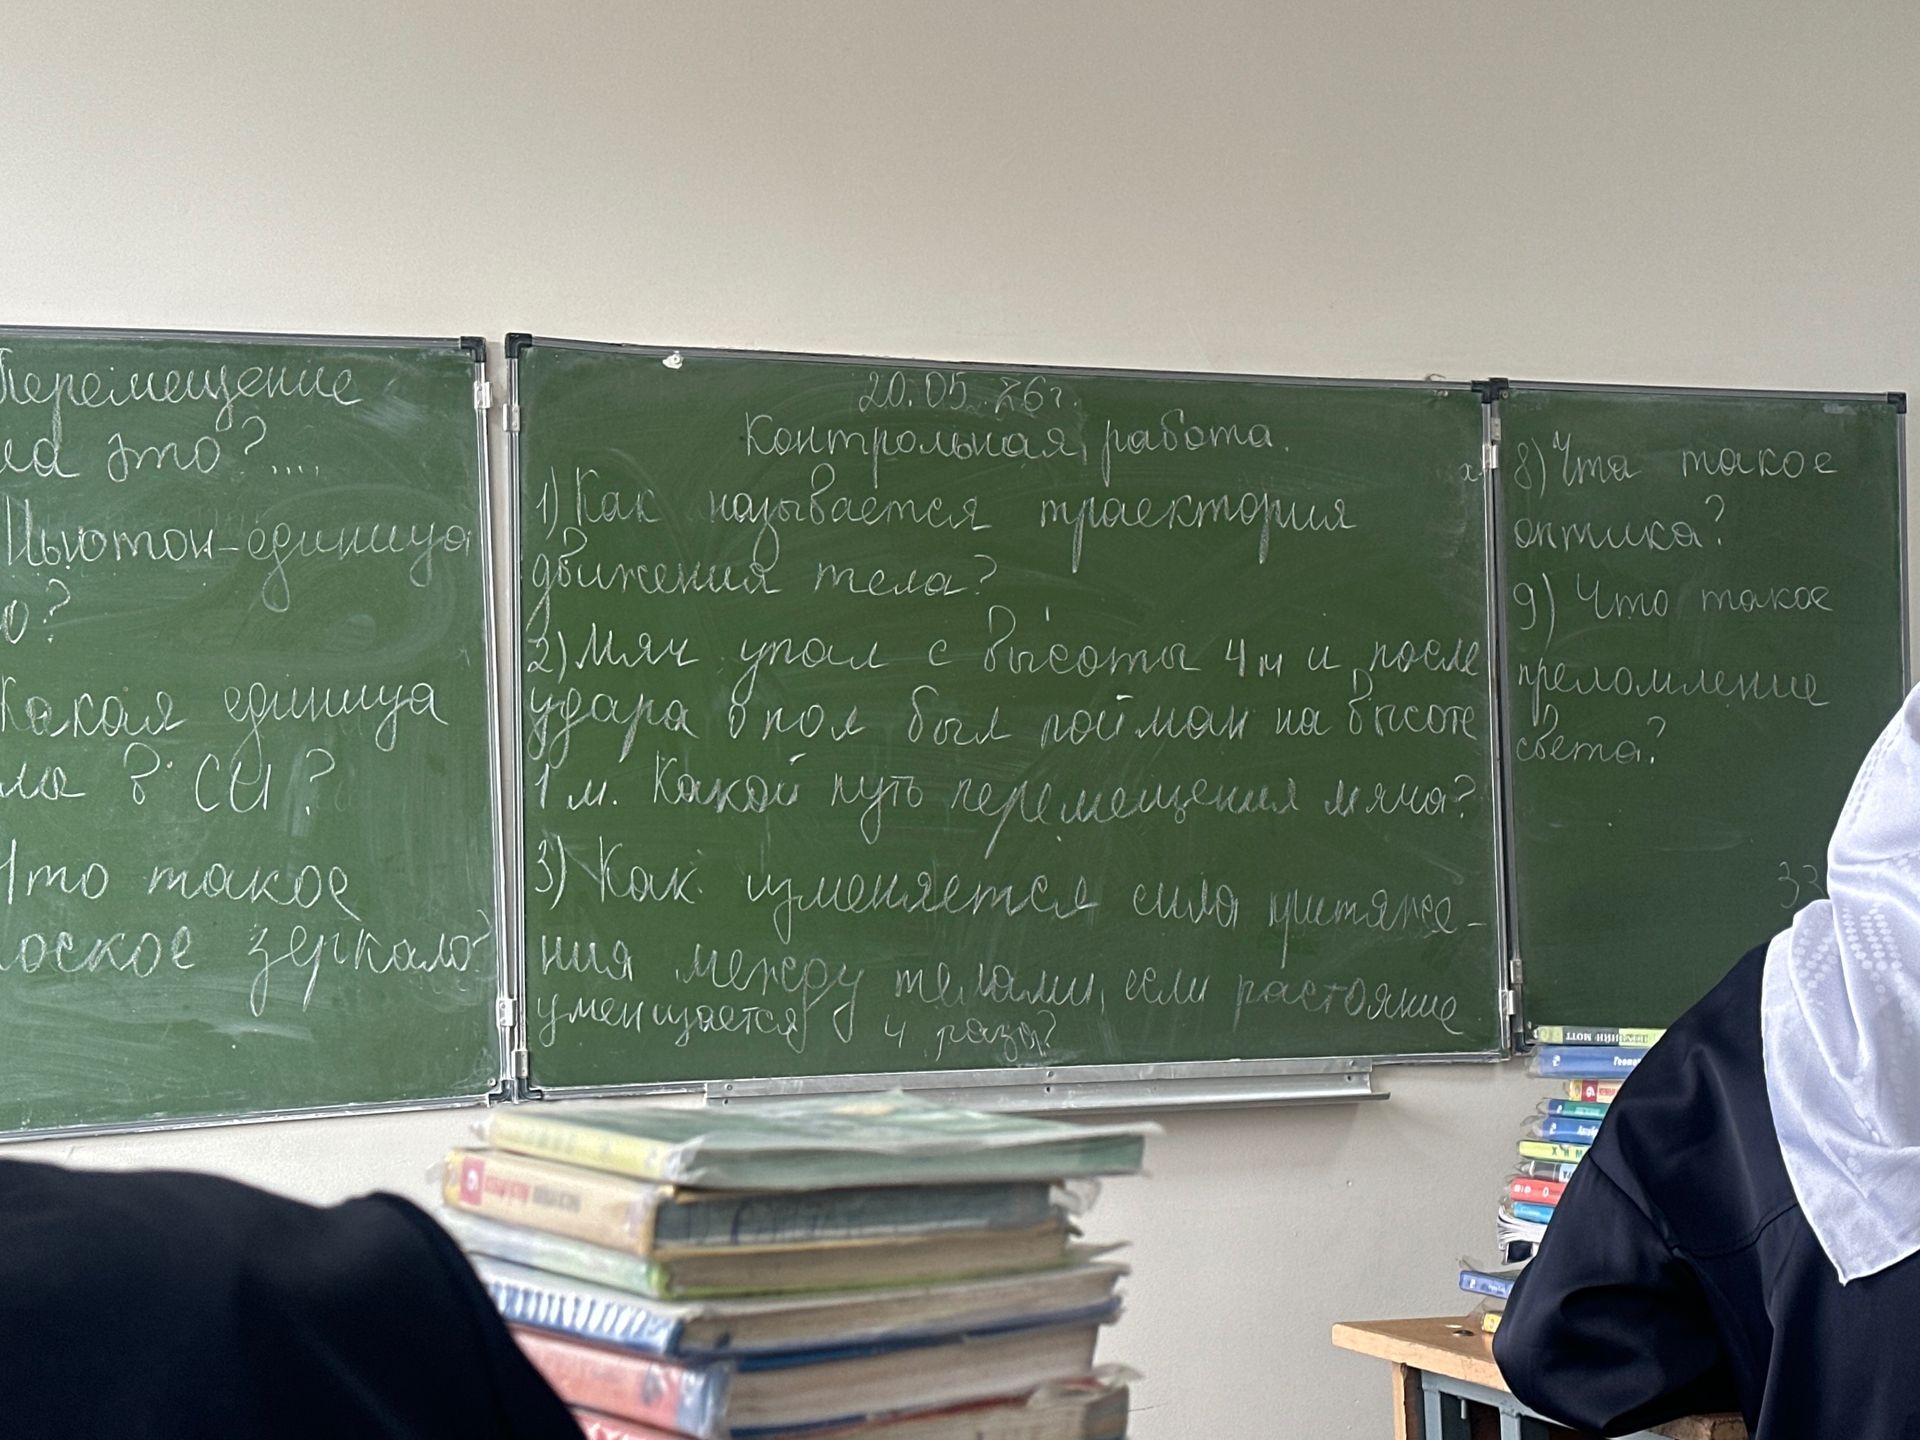 Перемещение
на это?....
Ньютон-единица
о?
Какая единица
ла в СИ?
Что такое
лоское зеркало?
20.05.26г.
Контрольная работа.
1) Как называется траектория
движения тела?
2) Мяч упал с высоты 4м и после
удара о пол был пойман на высоте
1 м. Какой путь перемещения мяча?
3) Как изменяется сила притяже-
ния между телами, если растояние
уменщается 4 раза?
8) Что такое
оптика?
9) Что такое
преломление
света?
33